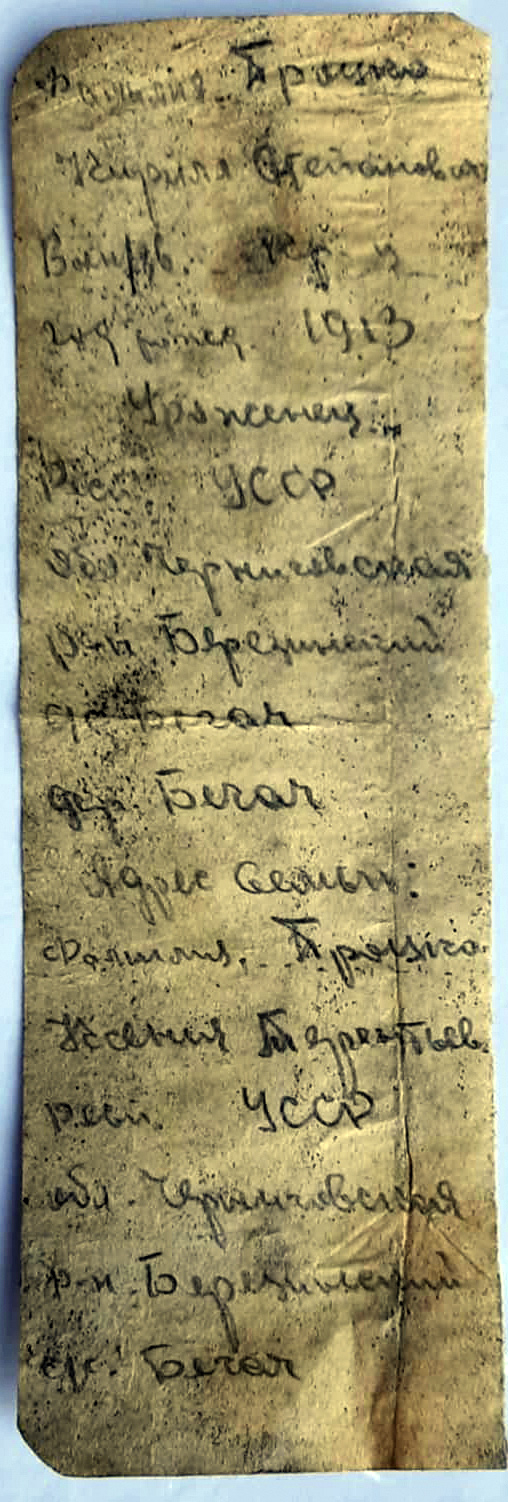 Фамилия Процко
Кирилл Степанович
Воин. зв. кр-ц
год рожд. 1913
Уроженец:
Респ. УССР
обл. Черниговская
р-н Березинский
с/с Бегач
дер. Бегач
Адрес семьи:
Фамилия, Процко
Ксения Терентьев.
респ. УССР
обл. Черниговская
р-н. Березинский
с/с. Бегач